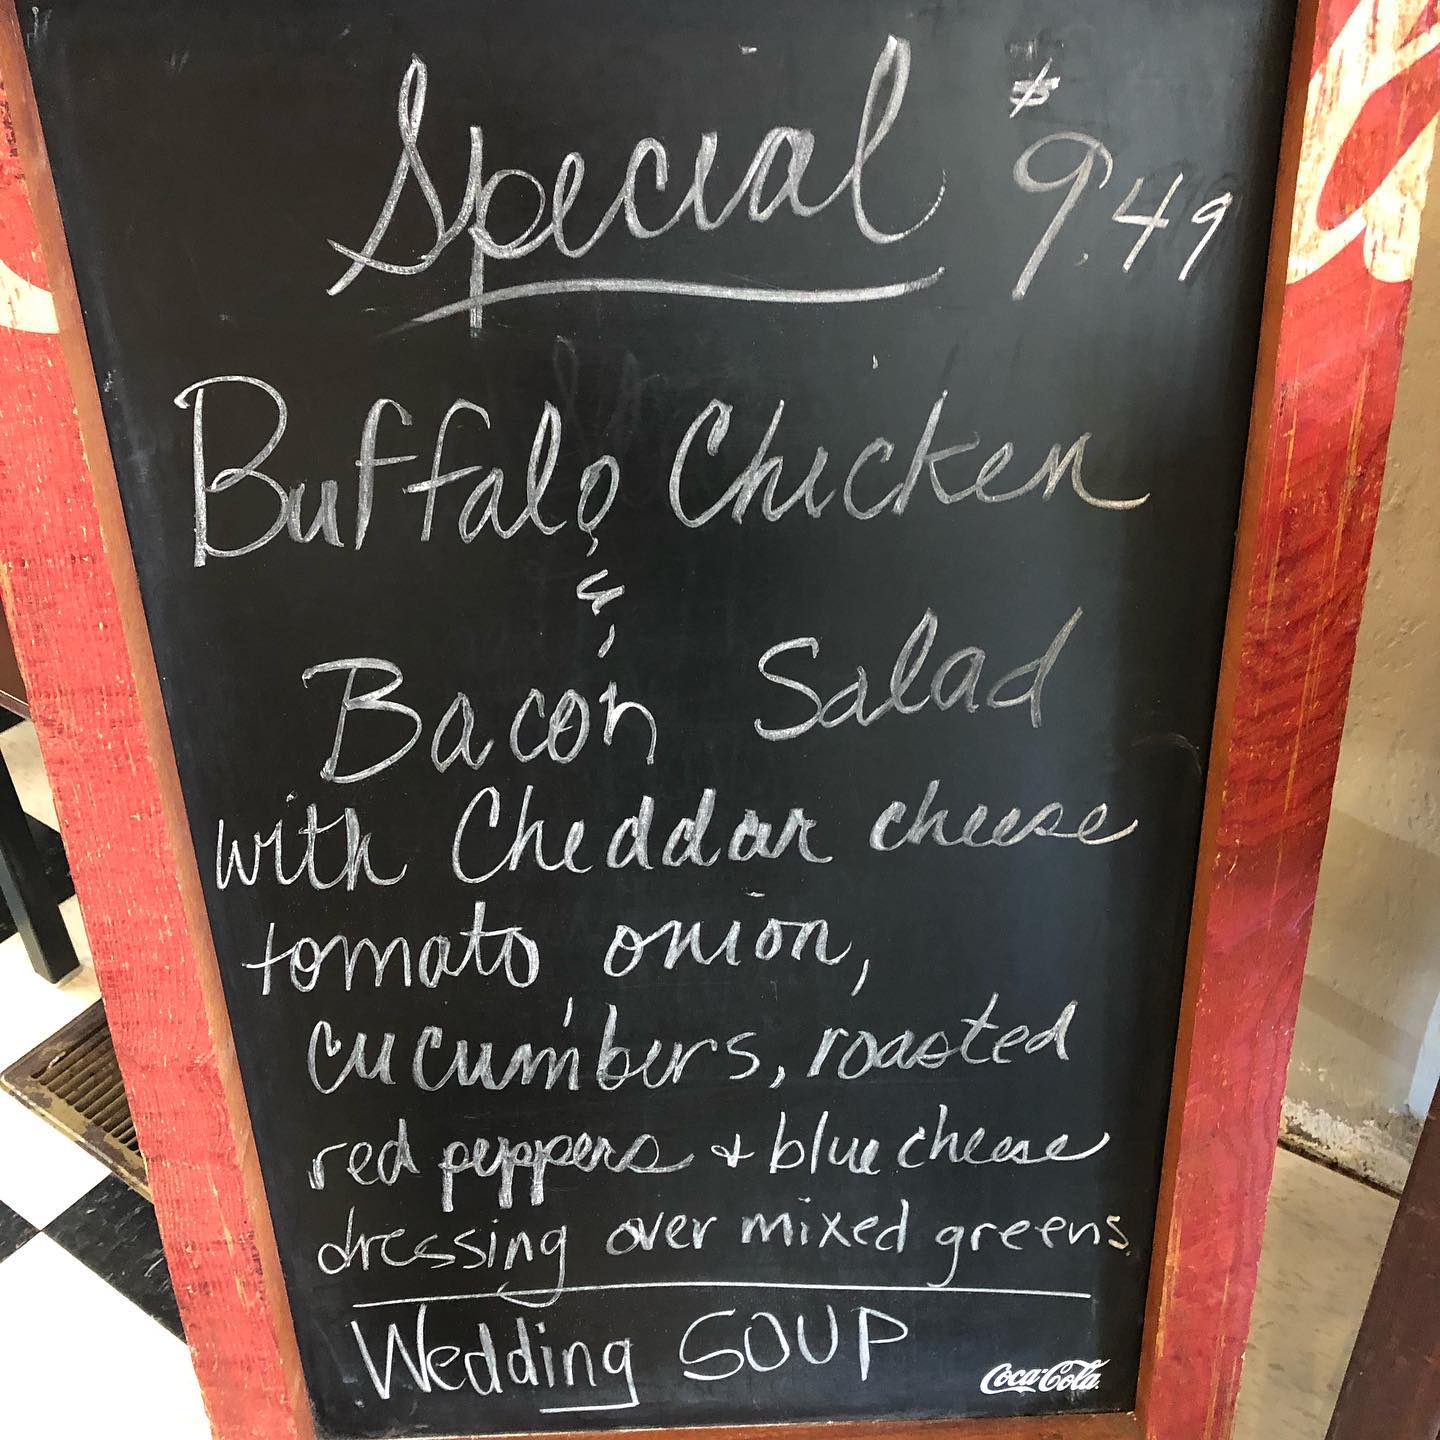 Special $9.49
Buffalo Chicken
&
Bacon Salad
with Cheddar cheese
tomato, onion,
cucumbers, roasted
red peppers & blue cheese
dressing over mixed greens.
Wedding SOUP
Coca-Cola